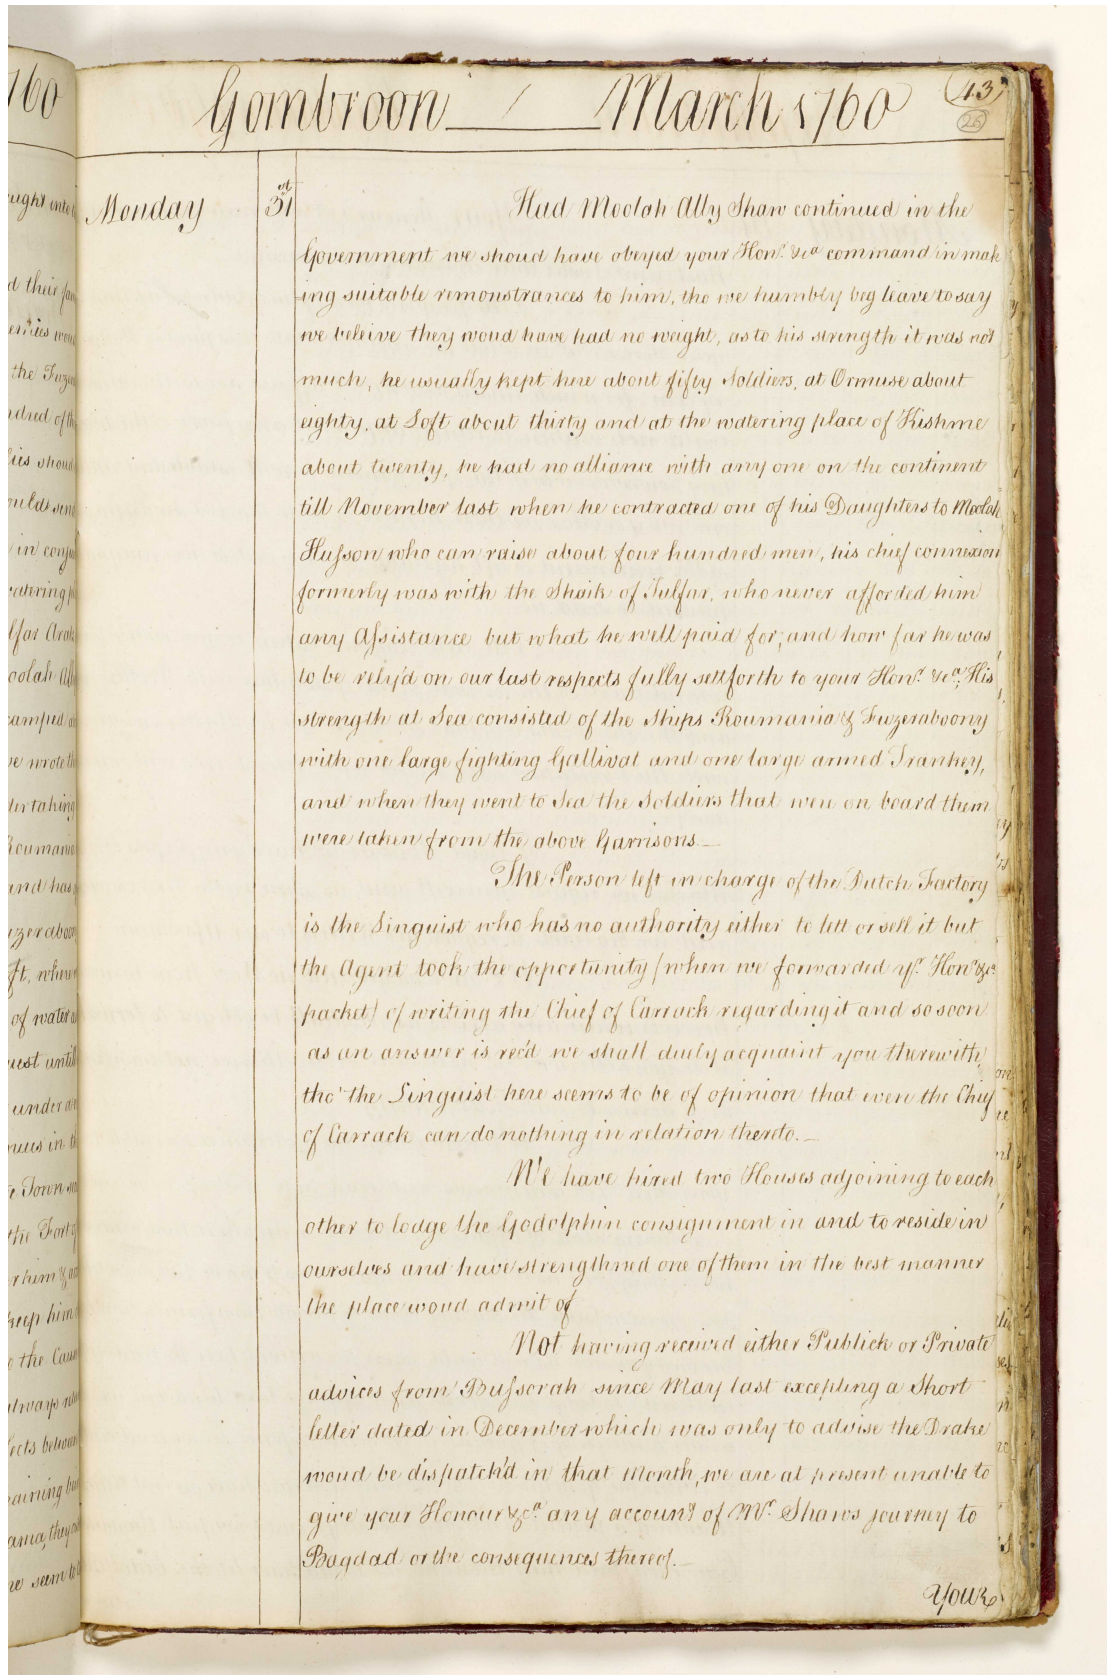 Gombroon March 1760
43
26
Monday 31st
Had Moolah Ally Shaw continued in the
Government we shoud have obeyed your Honr. &ca command in mak
-ing suitable remonstrances to him, tho we humbly beg leave to say
we beleive they woud have had no weight, as to his strength it was not
much, he usually kept here about fifty Soldiers, at Ormuse about
eighty, at Loft about thirty and at the watering place of Kishme
about twenty, he had no alliance with any one on the continent
till November last when he contracted one of his Daughters to Moolah
Husson who can raise about four hundred men, his chief connexion
formerly was with the Shaik of Julfar, who never afforded him
any Assistance but what he well paid for; and how far he was
to be rely'd on our last respects fully sett forth to your Honr. &ca; His
strength at Sea consisted of the Ships Roumania & Fuzeraboony
with one large fighting Gallivat and one large armed Trankey,
and when they went to Sea the Soldiers that were on board them
were taken from the above Garrisons.—
The Person left in charge of the Dutch Factory
is the Linguist who has no authority either to lett or sell it but
the Agent took the opportunity (when we forwarded yr. Honr. &ca
packet) of writing the Chief of Carrack regarding it and so soon
as an answer is rec'd we shall duely acquaint you therewith,
tho' the Linguist here seems to be of opinion that even the Chief
of Carrack can do nothing in relation thereto.—
We have hired two Houses adjoining to each
other to lodge the Godolphin consignment in and to reside in
ourselves and have strengthned one of them in the best manner
the place woud admit of
Not having received either Publick or Private
advices from Bussorah since May last excepting a Short
letter dated in December which was only to advise the Drake
woud be dispatch'd in that Month, we are at present unable to
give your Honour &ca. any account of Mr. Shaws journey to
Bagdad or the consequences thereof.—
Your